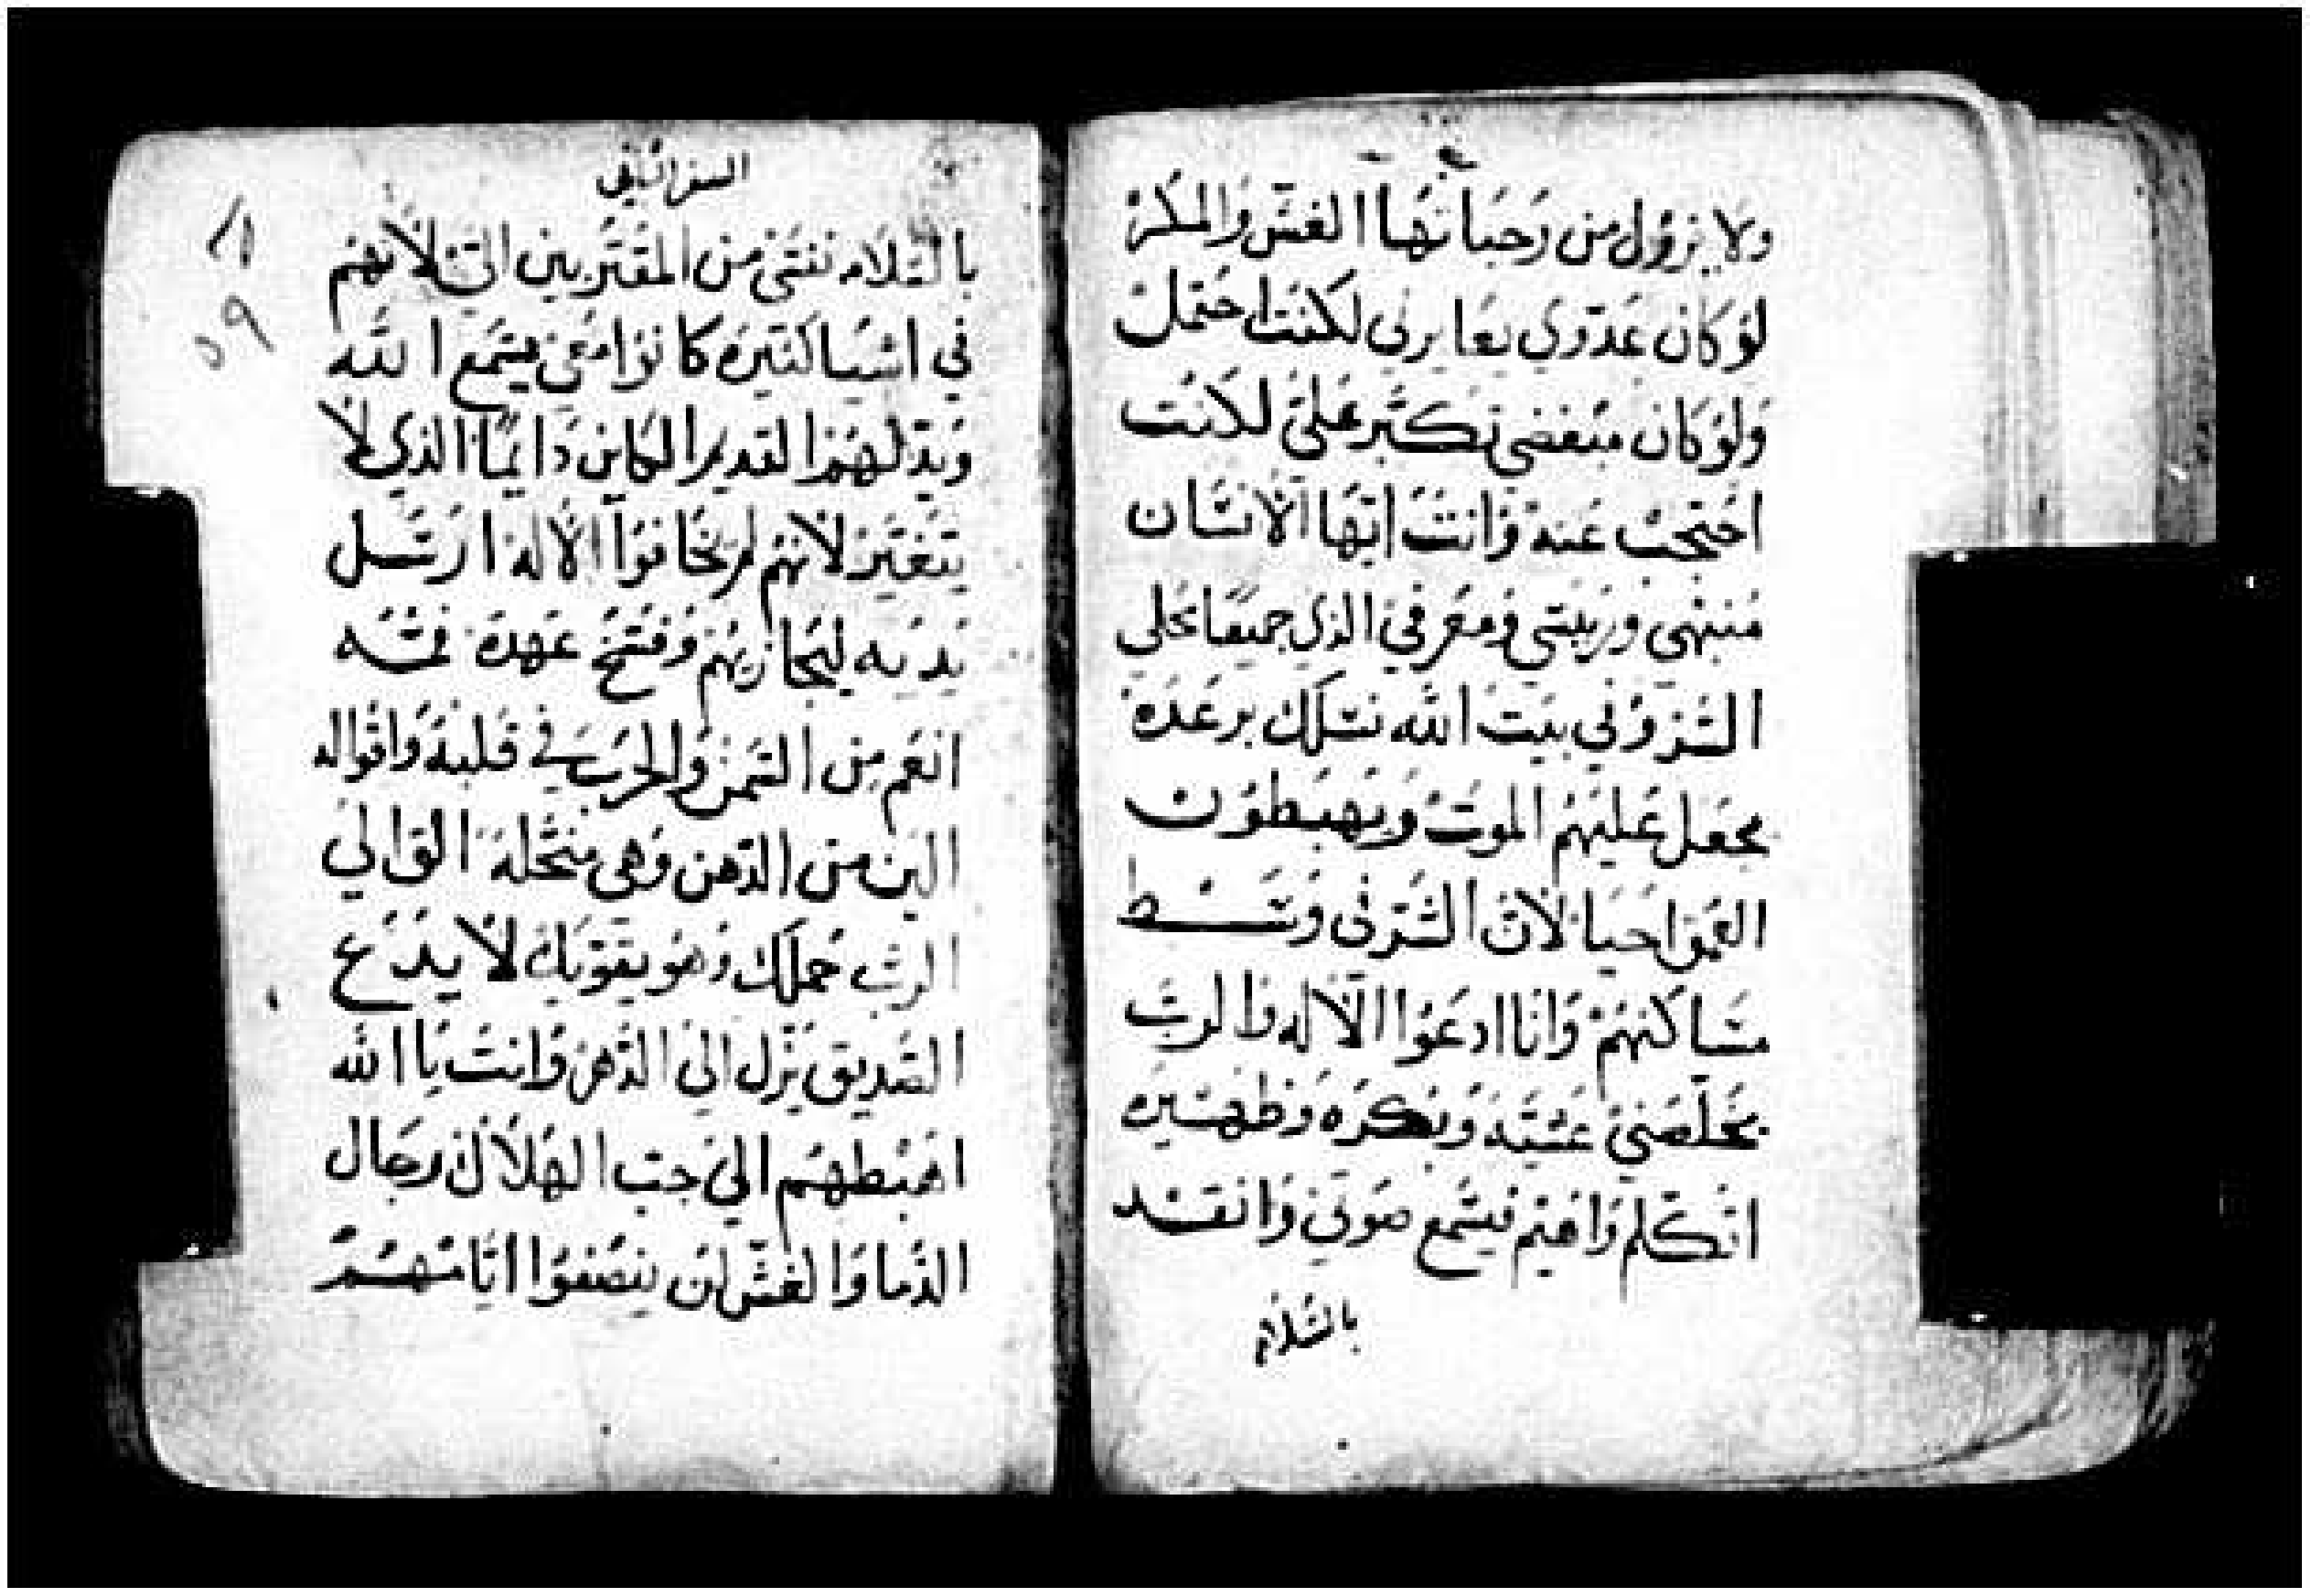 ولا يزول من رحباتها الغش والمكر
لو كان عدوي يعايرني لكنت احتمل
ولو كان مبغضي تكبر علي لكنت
احتجب عنه وانت ايها الانسان
منبهي وربيتي ومعرفي الذي جميعا تحلي
السر وفي بيت الله نسلك برعدة
يجعل عليهم الموت ويهبطون
العمق احيا لان الشر في وسط
مساكنهم وانا ادعوا الاله والرب
يخلصني عشية وبكره وظهيره
اتكلم واهتم فيسمع صوتي وانقد
بالسلام
السفر الثاني
بالسلام نفسي من المقتربين الي لانهم
في اشيا كثيره كانوا معي يسمع الله
ويدلهم القديم الكاين دايما الذي لا
يتغير لانهم لم يخافوا الاله ارسل
يديه ليجازيهم وفسخ عهده فمه
انعم من السمن والحرب في قلبه واقواله
الين من الدهن وهي منحله القا الي
الرب حملك وهو يقوتك لا يدع
الصديق يزل الي الدهر وانت يا الله
اهبطهم الي جب الهلاك رجال
الدما والغش لن ينصفوا ايامهم